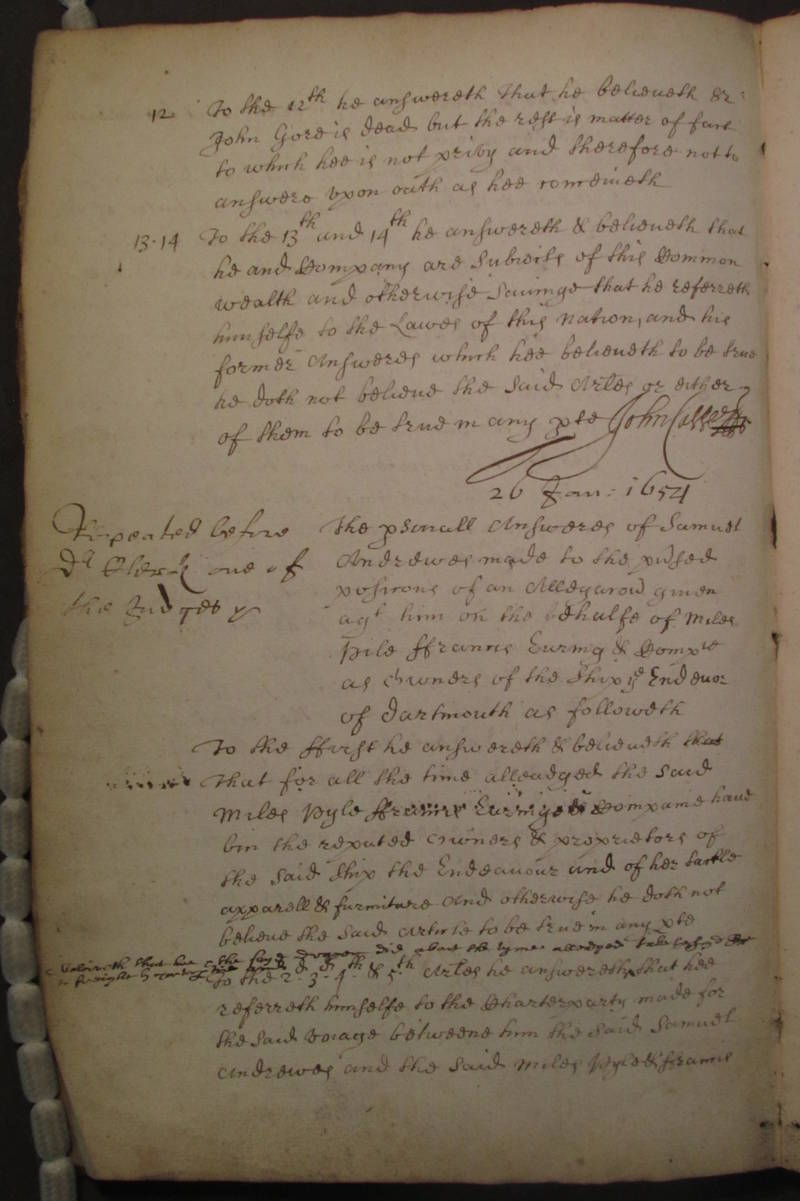 12 To the 12th he answereth that he beleeueth Sr:
John Gore is dead but the rest is matter of fact
to which hee is not privy and therefore not to
answere vpon oath as hee conceiueth
13.14 To the 13th and 14th he answereth & beleeueth that
he and Company are subiects of this Common
wealth and otherwise sauinge that he referreth
himselfe to the Lawes of this Nation, and his
former Answeres which hee belieueth to be true
he doth not belieue the said Arles or either
of them to be true in any pte John
26 Jan: 1654
Repeated before
Dr Clerk one of
the Judges
The psonall Answeres of Samuel
Andrewes made to the ptnsed
positions of an Allegacon giuen
agt him on the behalfe of Miles
Pile ffrancis Euring & Compie
as Owners of the Ship ye Endeuor
of Dartmouth as followeth
To the ffirst he answereth & belieueth that
that for all the time alleadged the said
Miles Pyle ffrancis Euringe & Companie haue
bin the reputed Owners & proprietors of
the said Ship the Endeauour and of her tackle
apparell & furniture And otherwise he doth not
belieue the said Article to be true in any pte
that hee did about the tyme alleaged take
To the 2. 3. 4. & 5th Arles he answereth that hee
referreth himselfe to the Charterparty made for
the said voiage betweene him the said Samuel
Andrewes and the said Miles Pyle & ffrancis